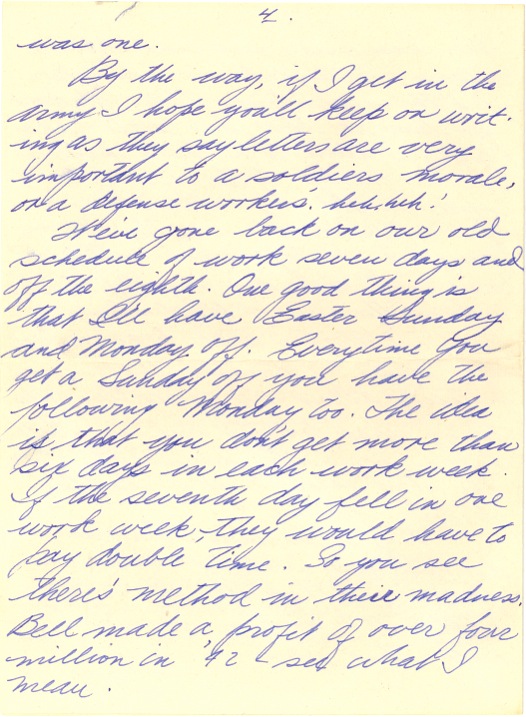 4.
was one.
By the way, if I get in the
army I hope you'll keep on writ-
ing as they say letters are very
important to a soldiers morale,
or a defense workers'. heh, heh!
We've gone back on our old
schedule of work seven days and
off the eighth. One good thing is
that I'll have Easter Sunday
and Monday off. Everytime you
get a Sunday off you have the
following Monday too. The idea
is that you don't get more than
six days in each work week.
If the seventh day fell in one
work week, they would have to
pay double time. So you see
there's method in their madness.
Bell made a profit of over four
million in '42 - see what I
mean.